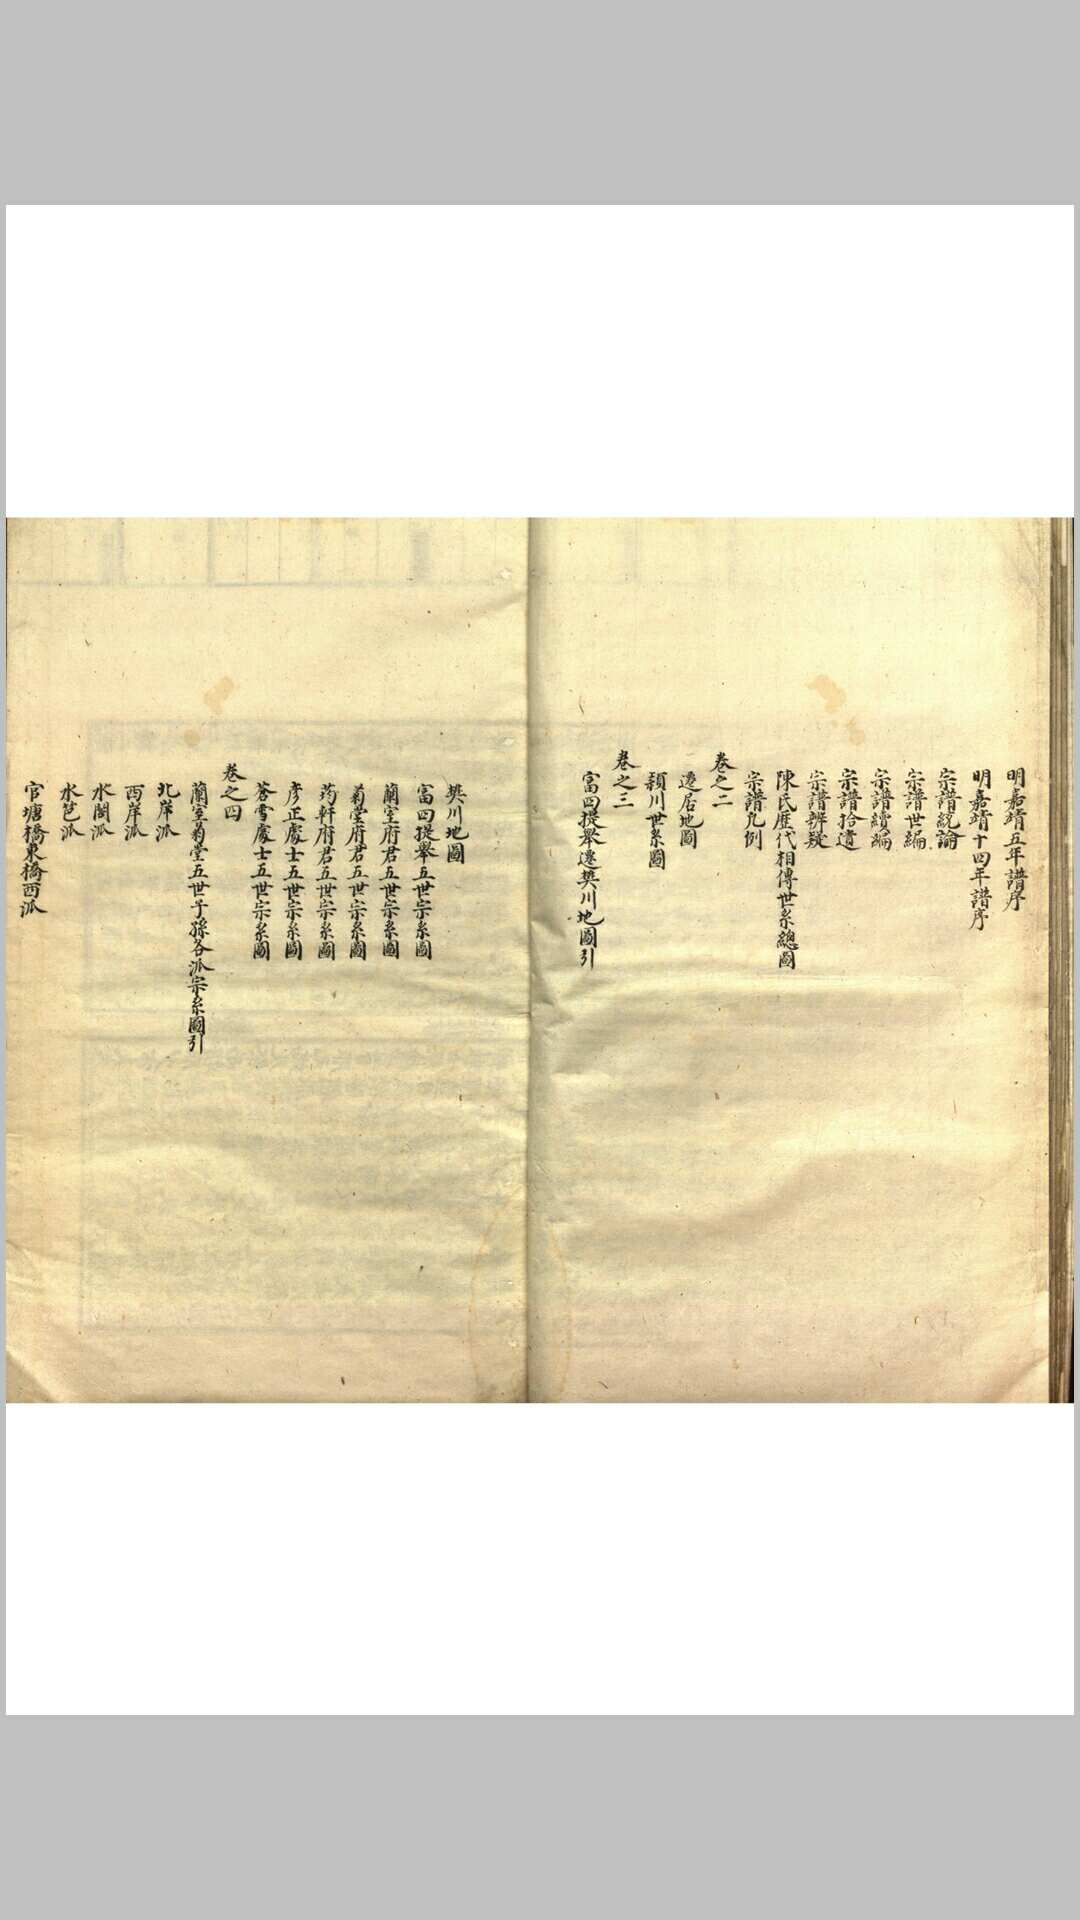 明嘉靖五年譜序
明嘉靖十四年譜序
宗譜統論
宗譜世編
宗譜續編
宗譜拾遺
宗譜辨疑
陳氏歷代相傳世系總圖
宗譜凡例
卷之二
遷居地圖
潁川世系圖
卷之三
富四提舉遷樊川地圖引
樊川地圖
富四提舉五世宗系圖
蘭室府君五世宗系圖
菊堂府君五世宗系圖
筠軒府君五世宗系圖
彥正處士五世宗系圖
蒼雪處士五世宗系圖
卷之四
蘭室菊堂五世子孫各派宗系圖引
北岸派
西岸派
水閣派
水笆派
官塘橋東橋西派